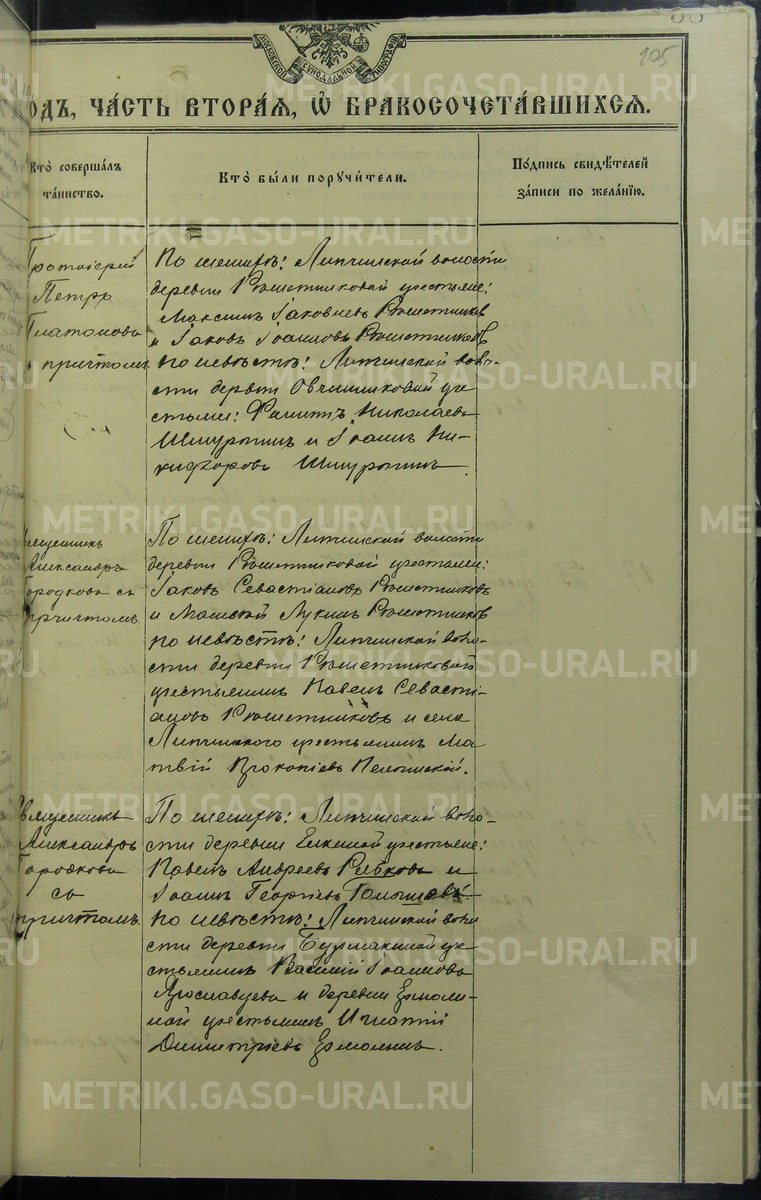 МОСКОВСКОЙ СѴНОДАЛЬНОЙ ТИПОГРАФІИ
105
ОДЪ, ЧА́СТЬ ВТОРА́Я, Ѡ БРАКОСОЧЕТА́ВШИХСЯ.
Кто̀ соверша́лъ
та́инство.
Кто̀ бы́ли поручи́тели.
По́дпись свидѣ́телей
за́писи по жела́нію.
Протоіерей
Петръ
Платоновъ
причтомъ
По женихѣ: Липчинской волости
деревни Рѣшетниковой крестьяне:
Максимъ Іаковлевъ Рѣшетниковъ
и Іаковъ Іоанновъ Рѣшетниковъ
по невѣстѣ: Липчинской воло-
сти деревни Овчинниковой кре
стьяне: Филиппъ Николаевъ
Шмуратинъ и Іоаннъ Ни-
кифоровъ Шмуратинъ.
Священникъ
Александръ
Городковъ съ
причтомъ.
По женихѣ: Липчинской волости
деревни Рѣшетниковой крестьяне:
Іаковъ Севастіановъ Рѣшетниковъ
и Лукинъ Рѣшетниковъ
по невѣстѣ: Липчинской воло-
сти деревни Рѣшетниковой
крестьянинъ Павелъ Севасті-
ановъ Рѣшетниковъ и села
Липчинского крестьянинъ Ма
твій Прокопіевъ
Священникъ
Александръ
Городковъ
съ
причтомъ.
По женихѣ: Липчинской воло-
сти деревни Елкиной крестьяне:
Павелъ Андреевъ Рябковъ и
Іоаннъ Георгіевъ
по невѣстѣ: Липчинской воло
сти деревни Бурмакиной кре
стьянинъ Василій Іоанновъ
Ярославцевъ и деревни Ермоли-
ной крестьянинъ Игнатій
Димитріевъ Ермолинъ.
METRIKI.GASO-URAL.RU